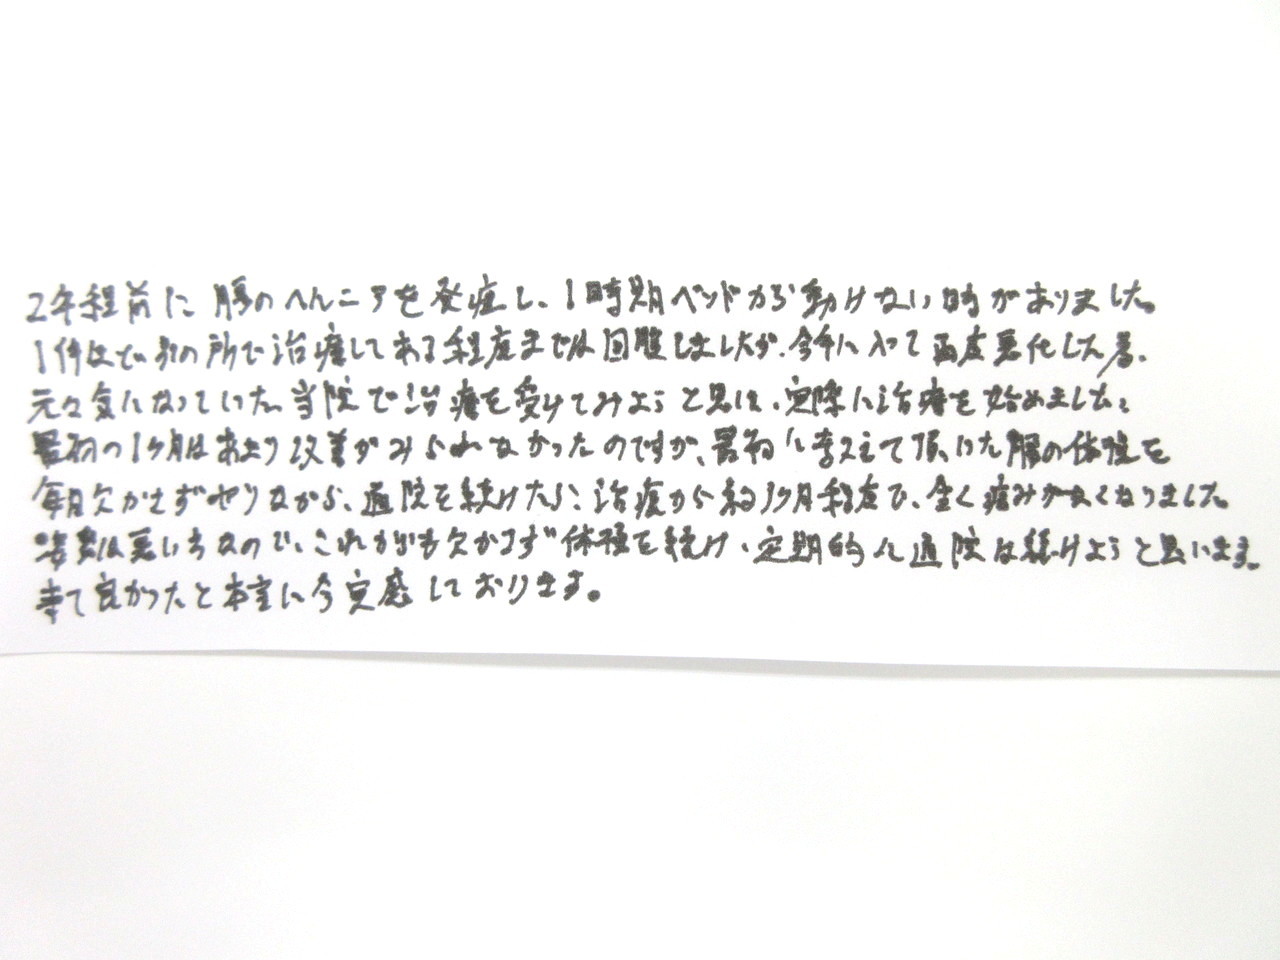 2年程前に腰のヘルニアを発症し、1時期ベッドから動けない時がありました。
1件ほど別の所で治療してある程度までは回復しましたが、今年に入って再度悪化した為、
元々気になっていた当院で治療を受けてみようと思い、実際に治療を始めました。
最初の1ヶ月はあまり改善がみられなかったのですが、最初に教えて頂いた腰の体操を
毎日欠かさずやりながら、通院を続けたら、治療から約3ヶ月程度で、全く痛みがなくなりました。
姿勢は悪い方なので、これからも欠かさず体操を続け、定期的に通院は続けようと思います。
来て良かったと本当に今実感しております。